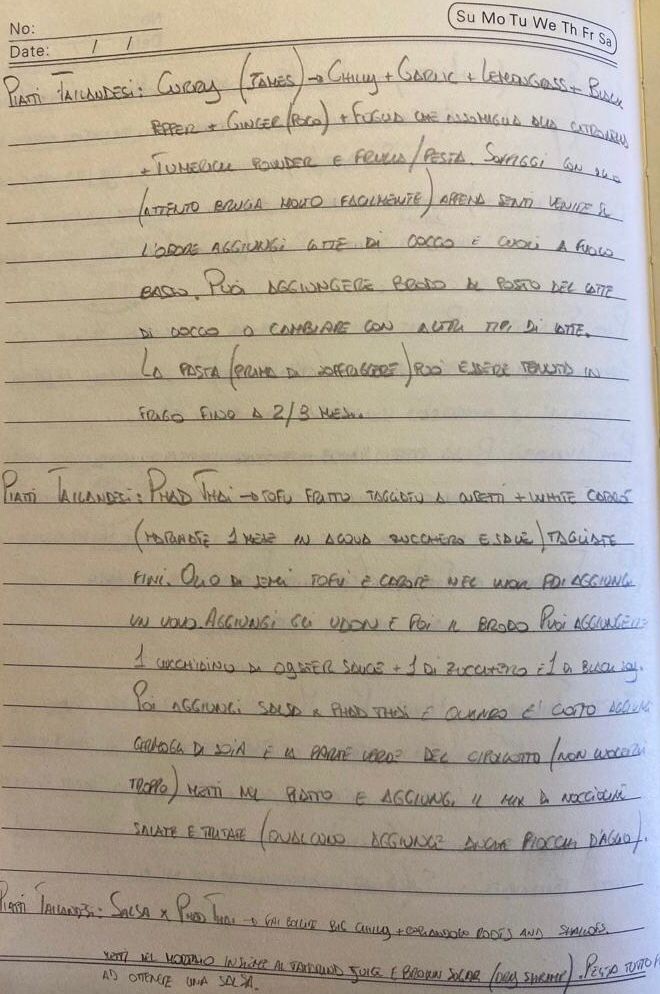 No:
Date: / /
Su Mo Tu We Th Fr Sa
PIATTI TAILANDESI: CURRY (JAMES) → CHILLY + GARLIC + LEMONGRASS + BLACK
PEPPER + GINGER (POCO) + FOGLIA CHE ASSOMIGLIA ALLA
+ TUMERICH POWDER E FRULLA/PESTA. SOFFRIGGI CON OLIO
(ATTENTO BRUCIA MOLTO FACILMENTE) APPENA SENTI VENIRE SU
L'ODORE AGGIUNGI LATTE DI COCCO E CUOCI A FUOCO
BASSO. PUOI AGGIUNGERE BRODO AL POSTO DEL LATTE
DI COCCO O CAMBIARE CON ALTRI TIPI DI LATTE.
LA PASTA (PRIMA DI SOFFRIGGERE) PUÒ ESSERE TENUTA IN
FRIGO FINO A 2/3 MESI.
PIATTI TAILANDESI: PHAD THAI → TOFU FRITTO TAGLIATO A CUBETTI + WHITE CAROTS
(MARINATE 1 MESE IN ACQUA ZUCCHERO E SALE) TAGLIATE
FINI. OLIO DI SEMI TOFU E CAROTE NEL WOK POI AGGIUNGI
UN UOVO. AGGIUNGI GLI UDON E POI IL BRODO PUOI AGGIUNGERE
1 CUCCHIAINO DI OYSTER SAUCE + 1 DI ZUCCHERO E 1 DI BLACK SOY.
POI AGGIUNGI SALSA X PHAD THAI E QUANDO E' COTTO AGGIUNGI
GERMOGLI DI SOIA E LA PARTE VERDE DEL CIPOLLOTTO (NON CUOCERLI
TROPPO) METTI NEL PIATTO E AGGIUNGI IL MIX DI NOCCIOLINE
SALATE E TRITATE (QUALCUNO AGGIUNGE ANCHE FIOCCHI D'AGLIO).
PIATTI TAILANDESI: SALSA X PHAD THAI → FAI BOLLIRE BIG CHILLY + CORIANDOLO ROOTS AND SHALLOTS.
METTI NEL MORTAIO INSIEME AL TAMARIND JUICE E BROWN SUGAR (DRY SHRIMP). PESTA TUTTO FINO
AD OTTENERE UNA SALSA.